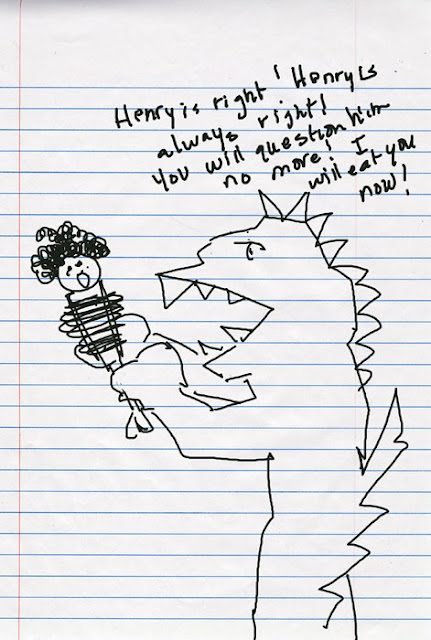 Henry is right! Henry is
always right!
You will question him
no more! I
will eat you
now!